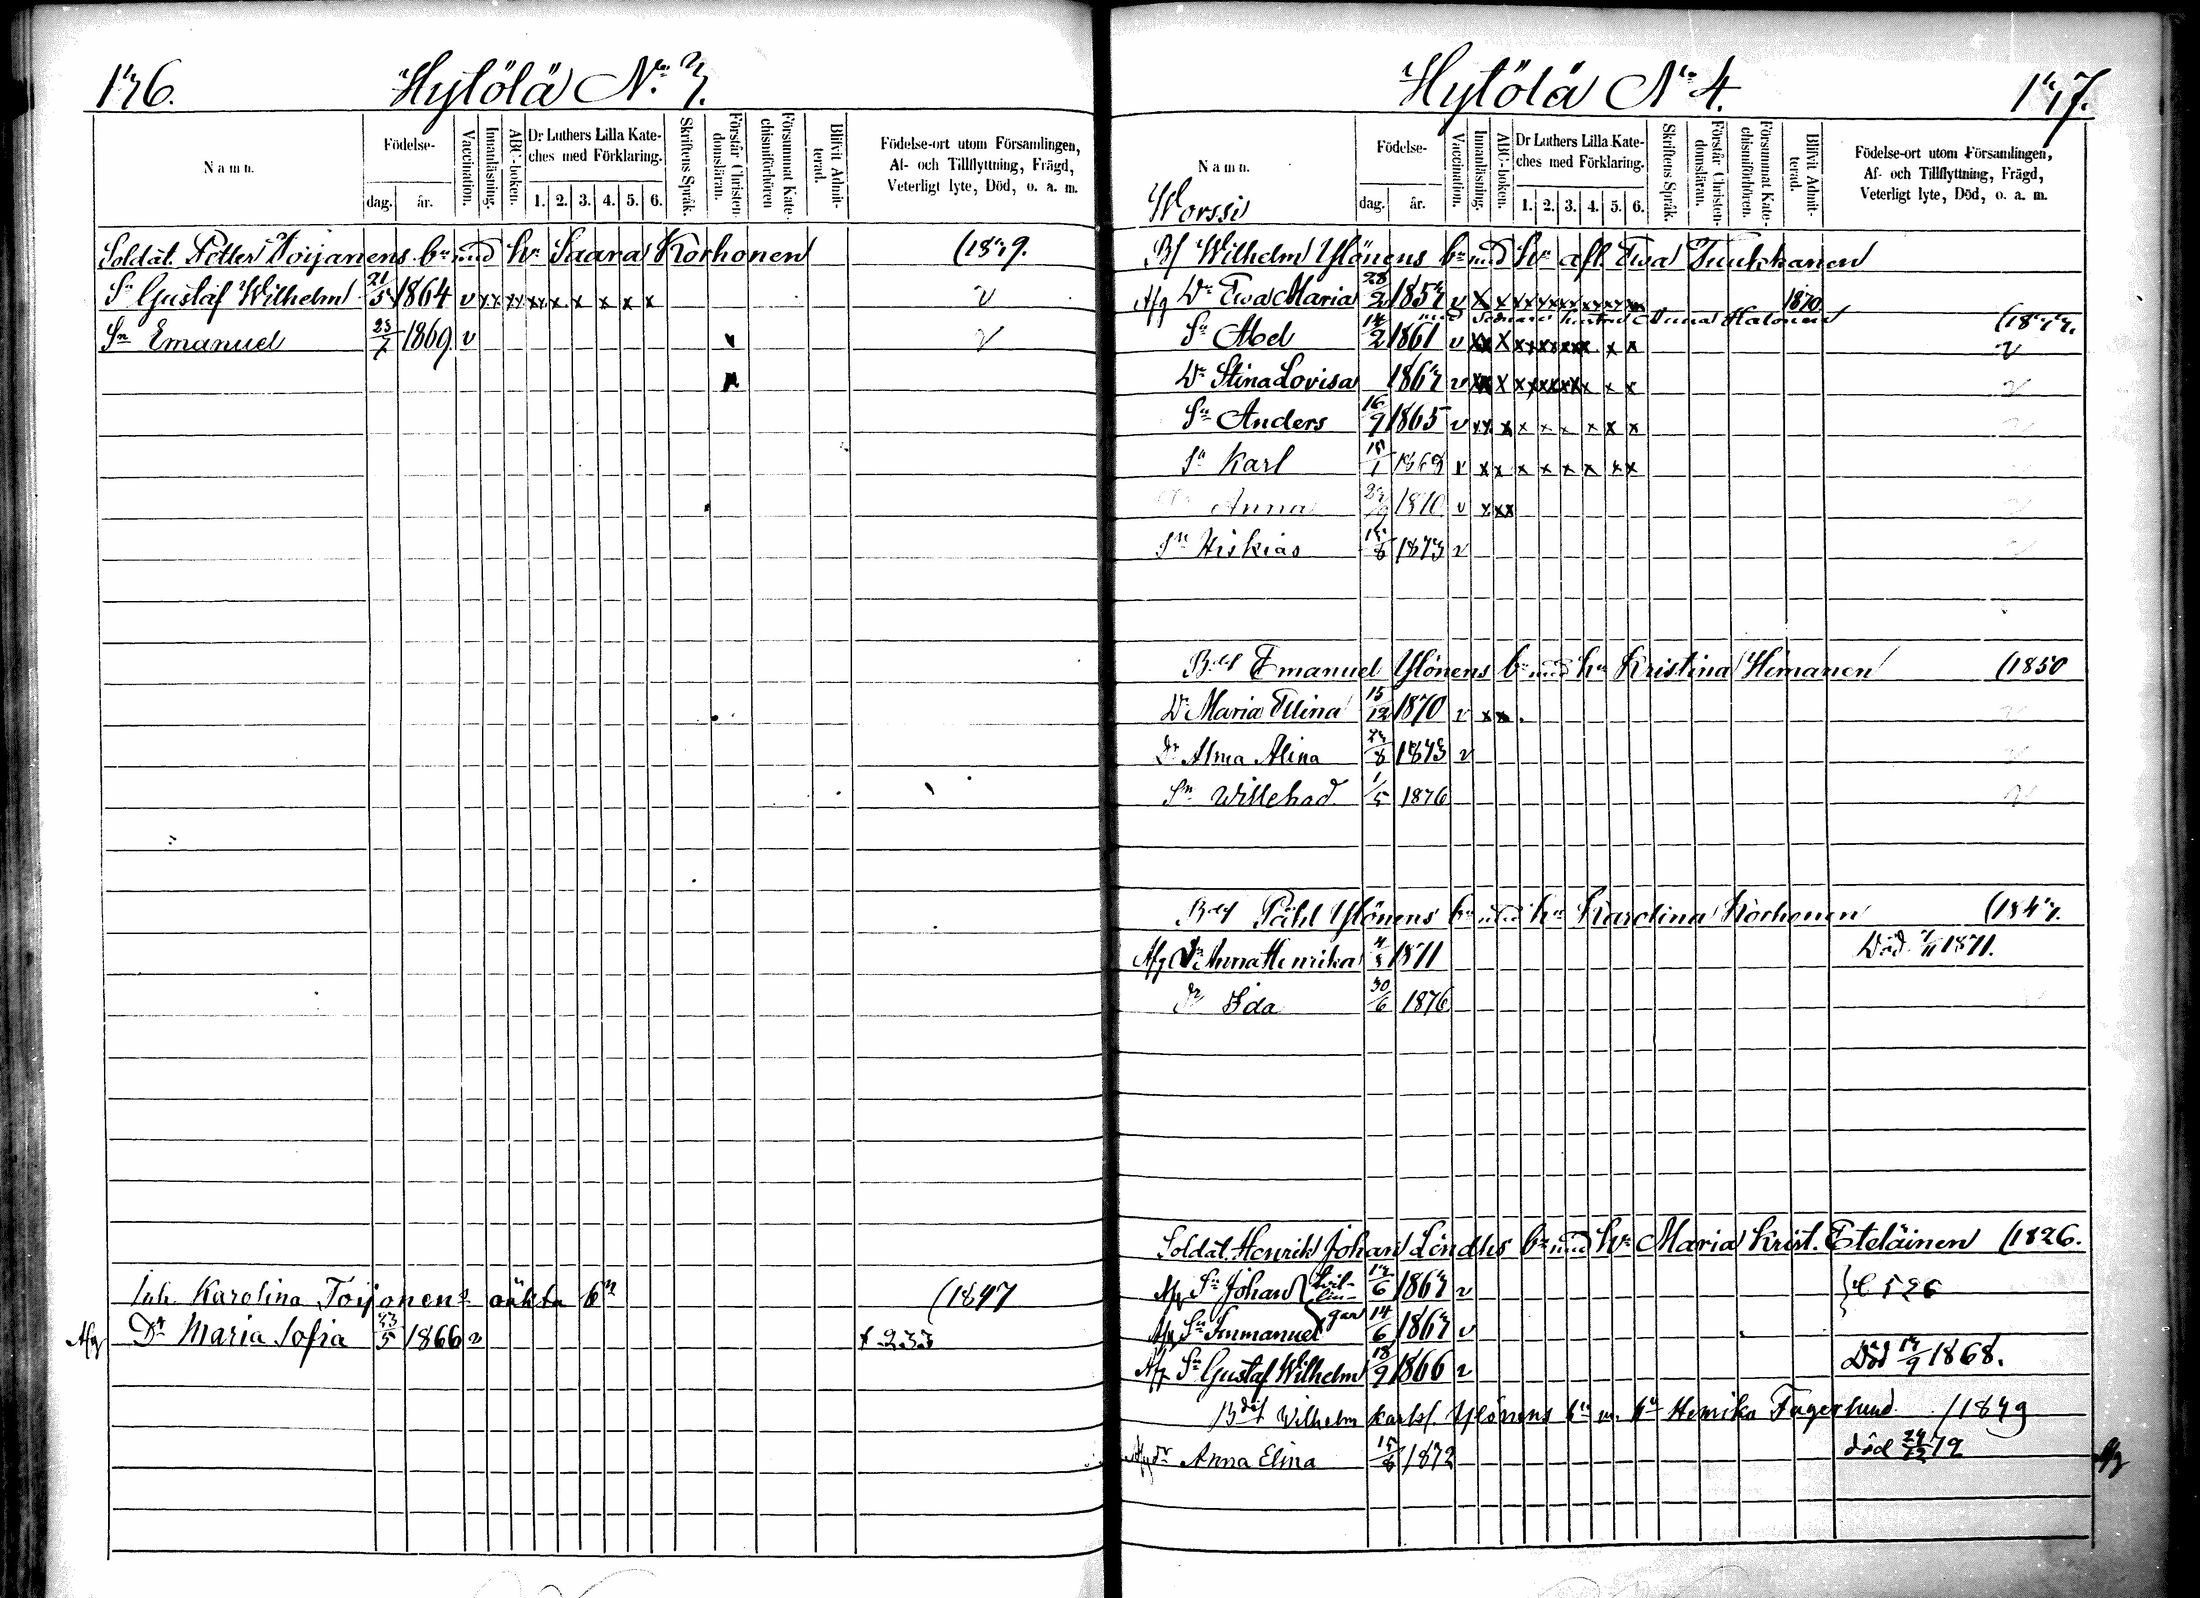 136.
Hytölä No. 3.
Namn.
Födelse-
dag. år.
Vaccination.
Innanläsning.
ABC-boken.
Dr Luthers Lilla Kate-
ches med Förklaring.
1. 2. 3. 4. 5. 6.
Skriftens Språk.
Förstår Christen-
domsläran.
Försummat Kate-
chismiförhören
Blifvit Admit-
terad.
Födelse-ort utom Församlingen,
Af- och Tillflyttning, Frägd,
Veterligt lyte, Död, o. a. m.
Soldat. Petter Toijanens bn med hu Saara Korhonen (1839.
Sn Gustaf Wilhelm 21/5 1864 v xx xx xx x x x x x v
Sn Emanuel 23/7 1869 v v v
x
Inh. Karolina Toijonens oäkta bn (1847
Afg Dr Maria Sofia 23/5 1866 v f 233
Hytölä No 4.
137.
Namn.
Födelse-
dag. år.
Vaccination.
Innanläsning.
ABC-boken.
Dr Luthers Lilla Kate-
ches med Förklaring.
1. 2. 3. 4. 5. 6.
Skriftens Språk.
Förstår Christen-
domsläran.
Försummat Kate-
chismiförhören.
Blifvit Admit-
terad.
Födelse-ort utom Församlingen,
Af- och Tillflyttning, Frägd,
Veterligt lyte, Död, o. a. m.
Worssi
Bf Wilhelm Ylönens bn med hu afl. Ewa Tuukkanen
Afg Dr Ewa Maria 28/2 1857 v x x xx xx xx xx xx xx 1870
med sednare hustru Anna Halonen (1833.
Sn Abel 14/2 1861 v xx x xx xx xx xx x x v
Dr Stina Lovisa 1863 v xx x x xx xx xx x x v
Sn Anders 16/9 1865 v xx x x x x x x x v
Sn Karl 18/1 1868 v x x x x x x x x v
Anna 1870 v x xx v
Sn Hiskias 15/8 1873 v v
Bdsf Emanuel Ylönens bn med hu Kristina Himanen (1850
Dr Maria Elina 15/12 1870 v x x v
Dr Alma Alina 23/8 1873 v v
Sn Willehad 1/5 1876 v
Bdsf Påhl Ylönens bn med hu Karolina Korhonen (1843.
Afg Dr Anna Henrika 1871 Död 1871.
Dr Ida 30/6 1876
Soldat. Henrik Johan Lindhs bn med hu Maria Krist. Eteläinen (1826.
Afg Sn Johan tvil- 14/6 1863 v f 526
lin-
Afg Sn Immanuel gar 14/6 1863 v
Afg Sn Gustaf Wilhelm 18/9 1866 v Död 14/9 1868.
Bdsf Wilhelm Karlsf. Ylönens bn m. hu Henrika Fagerlund /1849
Afg dr Anna Elina 15/8 1872 död 24/12 72 Afg